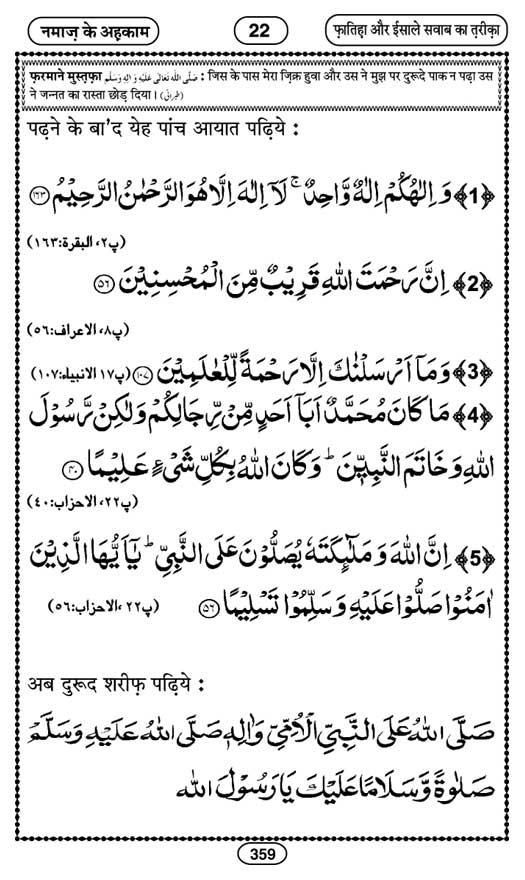 नमाज़ के अहकाम
22
फ़ातिह़ा और ईसाले सवाब का त़रीक़ा
फ़रमाने मुस्त़फ़ा صَلَّى اللهُ تَعَالٰى عَلَيْهِ وَاٰلِهٖ وَسَلَّم : जिस के पास मेरा ज़िक्र हुवा और उस ने मुझ पर दुरूदे पाक न पढ़ा उस
ने जन्नत का रास्ता छोड़ दिया। (طبرانی)
पढ़ने के बा'द येह पांच आयात पढ़िये :
﴿1﴾ وَ اِلٰهُكُمْ اِلٰهٌ وَّاحِدٌ ۚ لَاۤ اِلٰهَ اِلَّا هُوَ الرَّحْمٰنُ الرَّحِیْمُ ﴿۱۶۳﴾
(پ۲، البقرة:۱۶۳)
﴿2﴾ اِنَّ رَحْمَتَ اللهِ قَرِیْبٌ مِّنَ الْمُحْسِنِیْنَ ﴿۵۶﴾
(پ۸، الاعراف:۵۶)
﴿3﴾ وَ مَاۤ اَرْسَلْنٰكَ اِلَّا رَحْمَةً لِّلْعٰلَمِیْنَ ﴿۱۰۷﴾ (پ۱۷ الانبیاء:۱۰۷)
﴿4﴾ مَا كَانَ مُحَمَّدٌ اَبَاۤ اَحَدٍ مِّنْ رِّجَالِكُمْ وَ لٰكِنْ رَّسُوْلَ
اللهِ وَ خَاتَمَ النَّبِیّٖنَ ؕ وَ كَانَ اللهُ بِكُلِّ شَیْءٍ عَلِیْمًا ﴿۴۰﴾
(پ۲۲، الاحزاب:۴۰)
﴿5﴾ اِنَّ اللهَ وَ مَلٰٓىِٕكَتَهٗ یُصَلُّوْنَ عَلَى النَّبِیِّ ؕ یٰۤاَیُّهَا الَّذِیْنَ
اٰمَنُوْا صَلُّوْا عَلَیْهِ وَ سَلِّمُوْا تَسْلِیْمًا ﴿۵۶﴾ (پ۲۲، الاحزاب:۵۶)
अब दुरूद शरीफ़ पढ़िये :
صَلَّى اللهُ عَلَى النَّبِیِّ الْاُمِّیِّ وَاٰلِهٖ صَلَّى اللهُ عَلَیْهِ وَسَلَّمَ
صَلٰوةً وَّسَلَامًا عَلَیْكَ یَا رَسُوْلَ الله
359